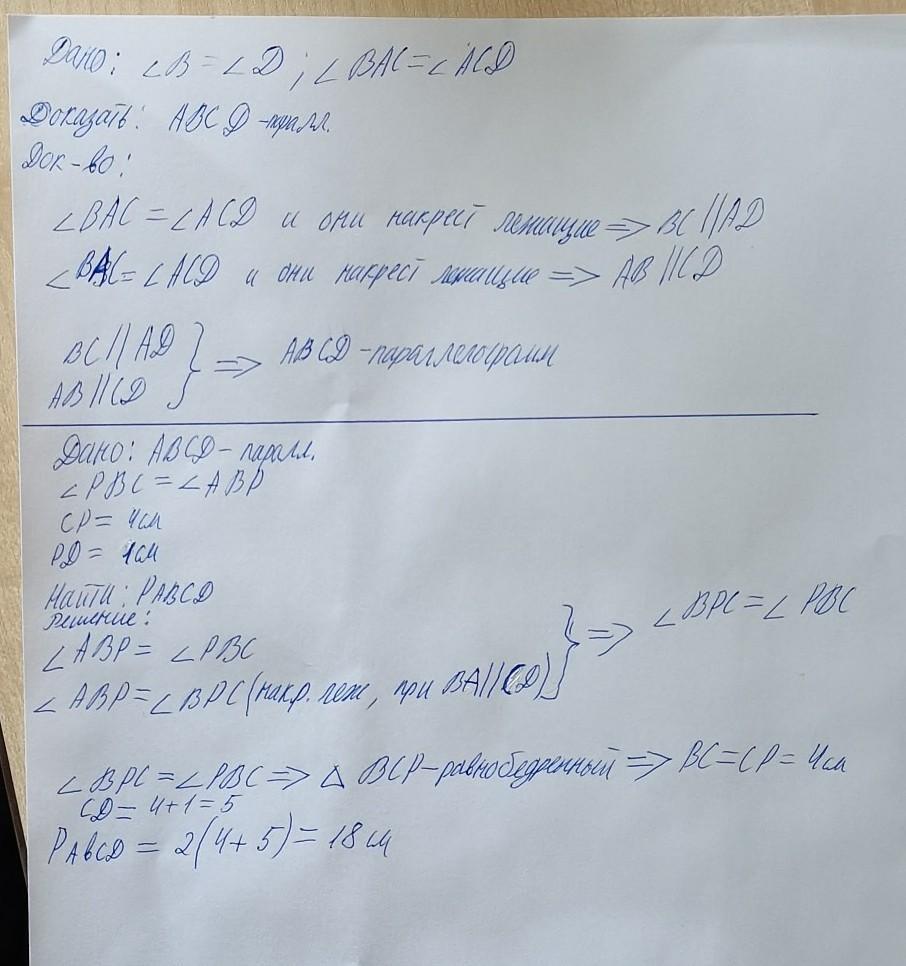 Дано: ∠B = ∠D ; ∠BAC = ∠ACD
Доказать: ABCD - паралл.
Док-во:
∠BAC = ∠ACD и они накрест лежащие => BC || AD
∠BAC = ∠ACD и они накрест лежащие => AB || CD
BC || AD
AB || CD } => ABCD - параллелограмм
Дано: ABCD - паралл.
∠PBC = ∠ABP
CP = 4 см
PD = 1 см
Найти: PABCD
Решение:
∠ABP = ∠PBC
∠ABP = ∠BPC (накр. леж, при BA || CD) } => ∠BPC = ∠PBC
∠BPC = ∠PBC => △ BCP - равнобедренный => BC = CP = 4 см
CD = 4+1 = 5
PABCD = 2(4+5) = 18 см